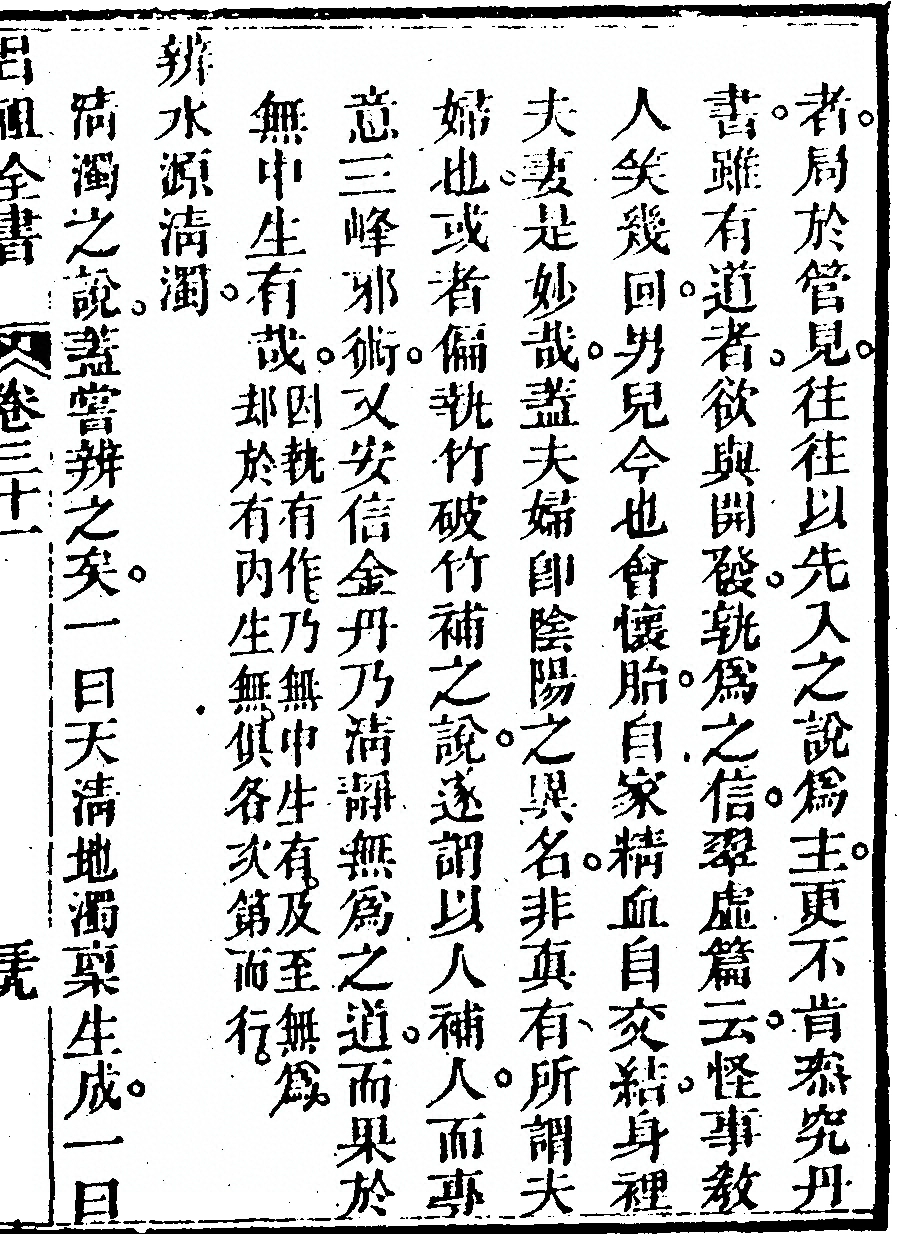 者。局於管見。往往以先入之說爲主。更不肯叅究丹
書。雖有道者。欲與開發。孰爲之信。翠虛篇云。怪事敎
人笑幾回。男兒今也會懷胎。自家精血自交結。身裡
夫妻是妙哉。蓋夫婦卽陰陽之異名。非眞有、所謂夫
婦也。或者偏執竹破竹補之說。遂謂以人補人。而專
意三峰邪術。又安信金丹乃淸靜無爲之道。而果於
無中生有哉。因執有作。乃無中生有。及至無爲。
却於有內生無。俱各次第而行。
辨水源淸濁。
淸濁之說。蓋嘗辨之矣。一曰天淸地濁稟生成。一曰
呂祖全書 卷三十一